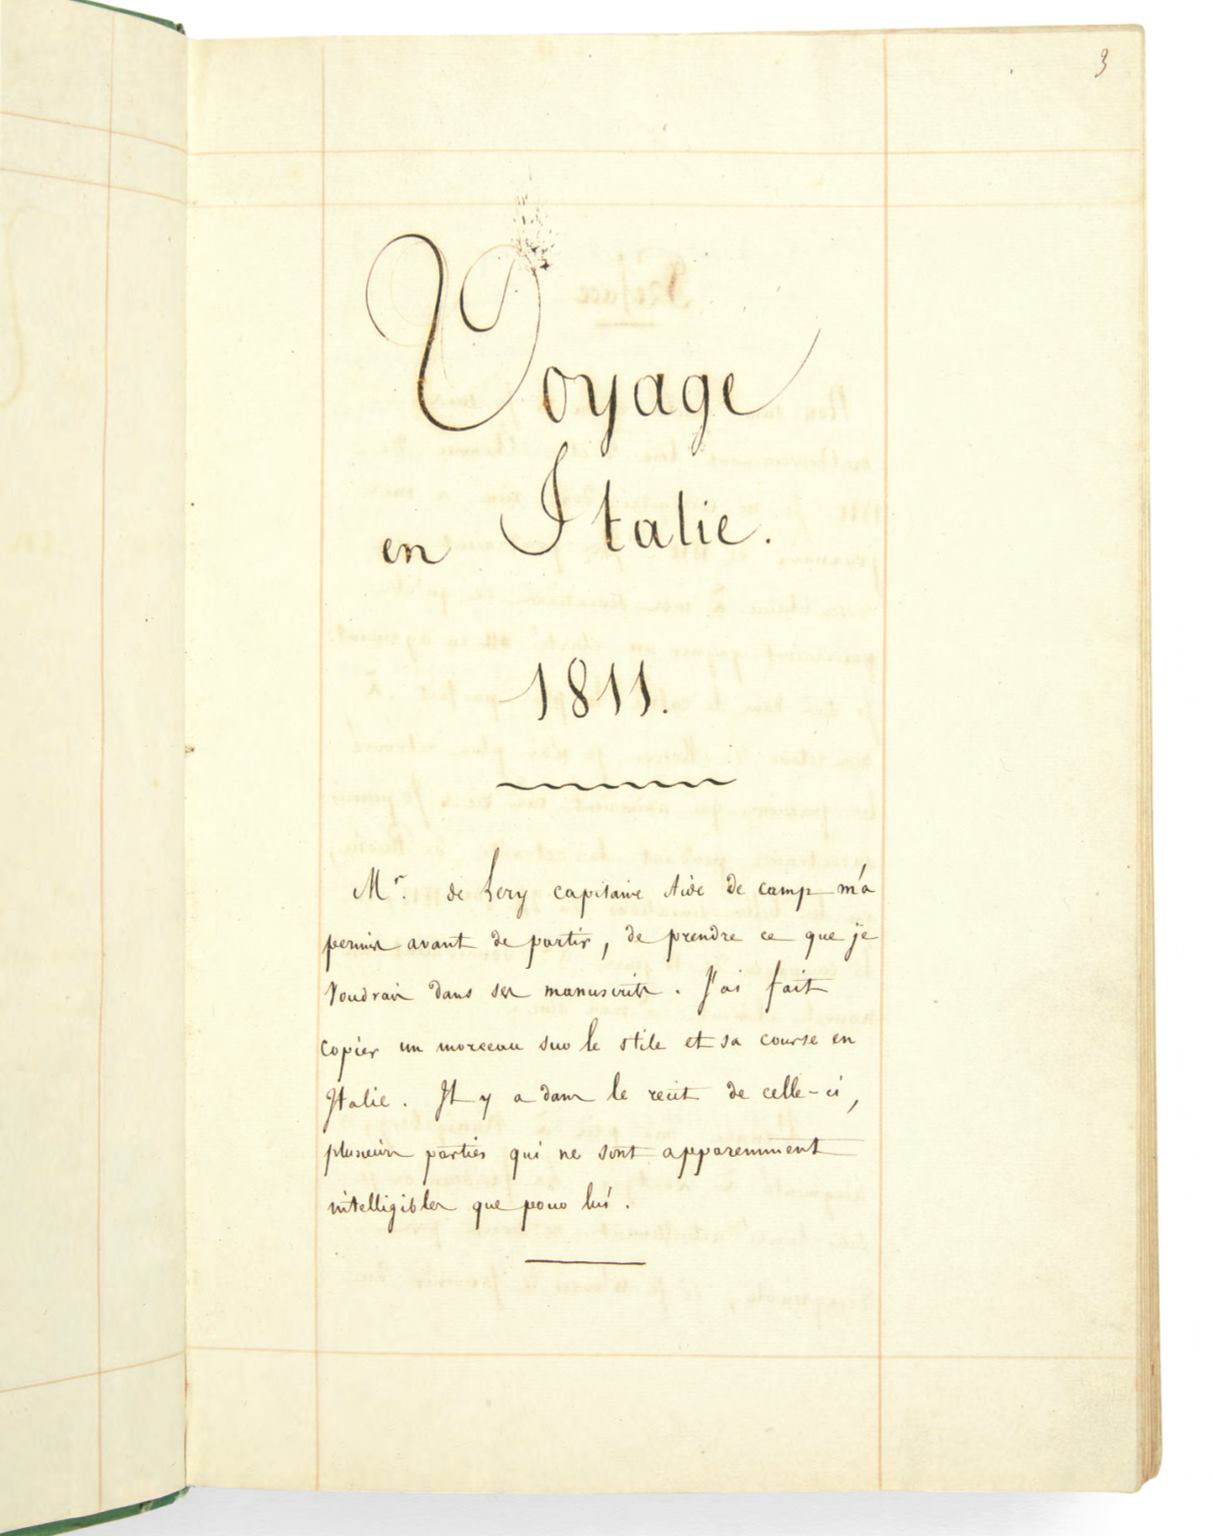 3
Voyage
en Italie.
1811.
Mr. de Lery capitaine Aide de camp m'a
permis avant de partir, de prendre ce que je
Voudrais dans ses manuscrits. J'ai fait
Copier un morceau sur le stile et sa course en
Italie. Il y a dans le recit de celle-ci,
plusieurs parties qui ne sont apparemment
intelligibles que pour lui.